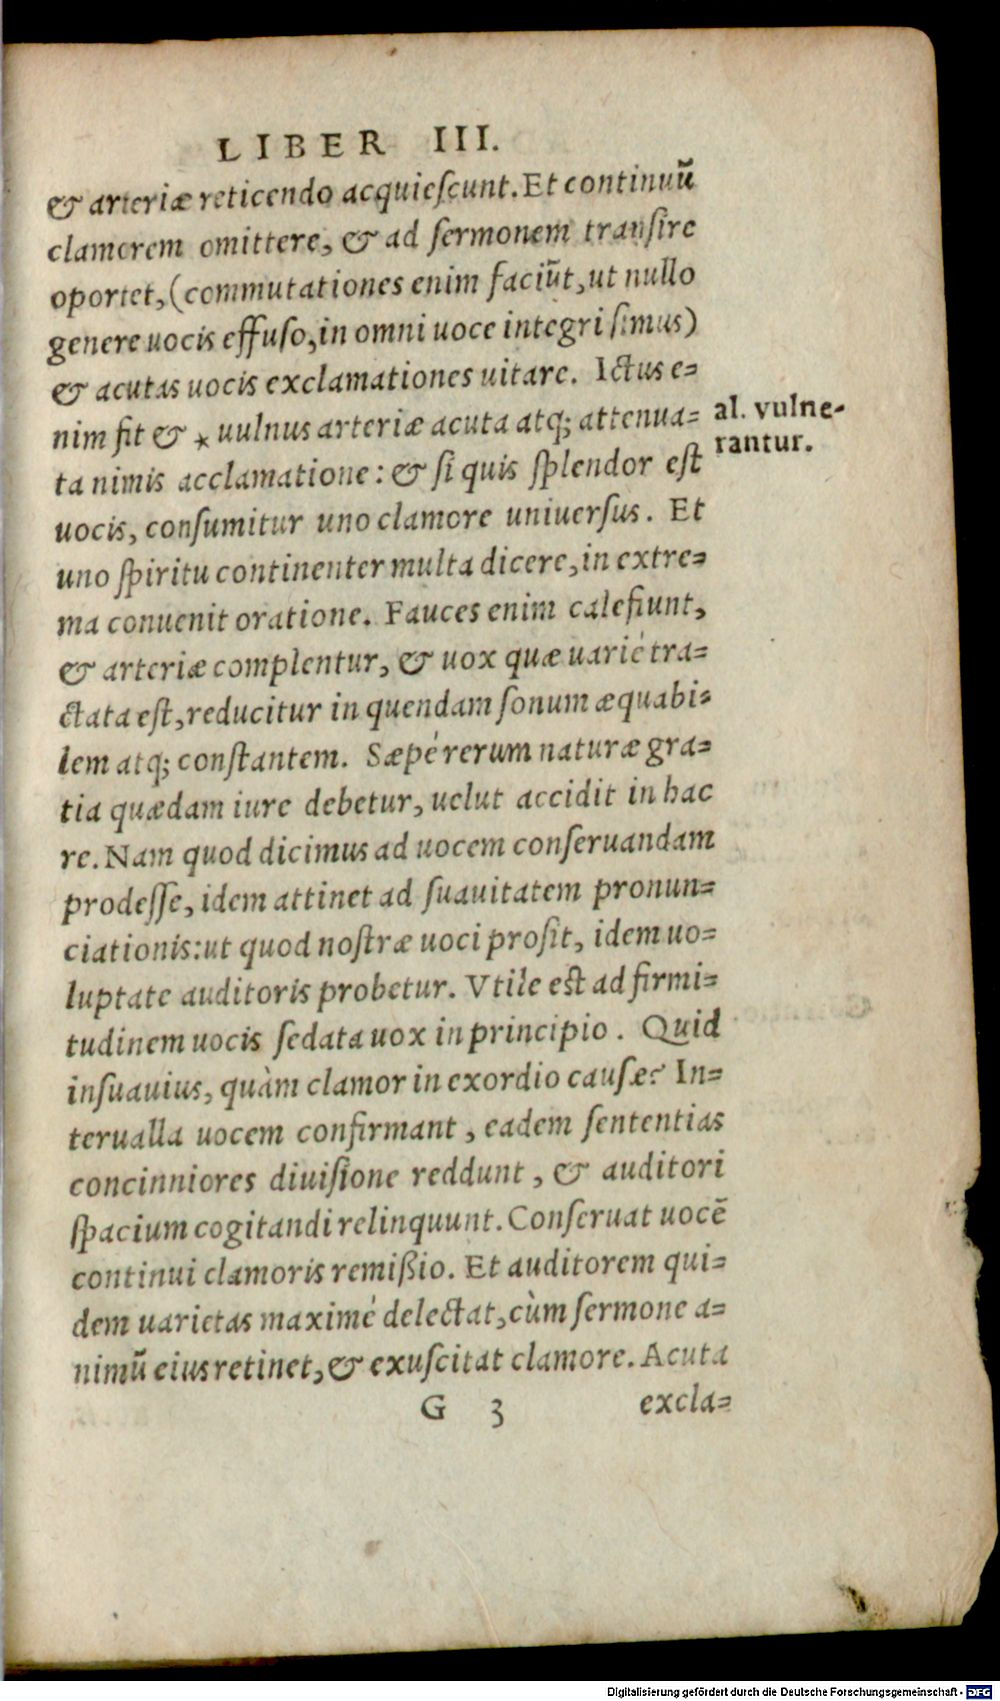 LIBER III.
& arteriæ reticendo acquiescunt. Et continuũ
clamorem omittere, & ad sermonem transire
oportet, (commutationes enim faciũt, ut nullo
genere uocis effuso, in omni uoce integri simus)
& acutas uocis exclamationes uitare. Ictus e=
nim fit & * uulnus arteriæ acuta atq; attenua=
al. vulne-
rantur.
ta nimis acclamatione: & si quis splendor est
uocis, consumitur uno clamore uniuersus. Et
uno spiritu continenter multa dicere, in extre=
ma conuenit oratione. Fauces enim calefiunt,
& arteriæ complentur, & uox quæ uarié tra=
ctata est, reducitur in quendam sonum æquabi=
lem atq; constantem. Sæpé rerum naturæ gra=
tia quædam iure debetur, uelut accidit in hac
re. Nam quod dicimus ad uocem conseruandam
prodesse, idem attinet ad suauitatem pronun=
ciationis: ut quod nostræ uoci prosit, idem uo=
luptate auditoris probetur. Vtile est ad firmi=
tudinem uocis sedata uox in principio. Quid
insuauius, quàm clamor in exordio causæ? In=
terualla uocem confirmant, eadem sententias
concinniores diuisione reddunt, & auditori
spacium cogitandi relinquunt. Conseruat uocē
continui clamoris remißio. Et auditorem qui=
dem uarietas maximé delectat, cùm sermone a=
nimũ eius retinet, & exuscitat clamore. Acuta
G 3 excla=
Digitalisierung gefördert durch die Deutsche Forschungsgemeinschaft - DFG